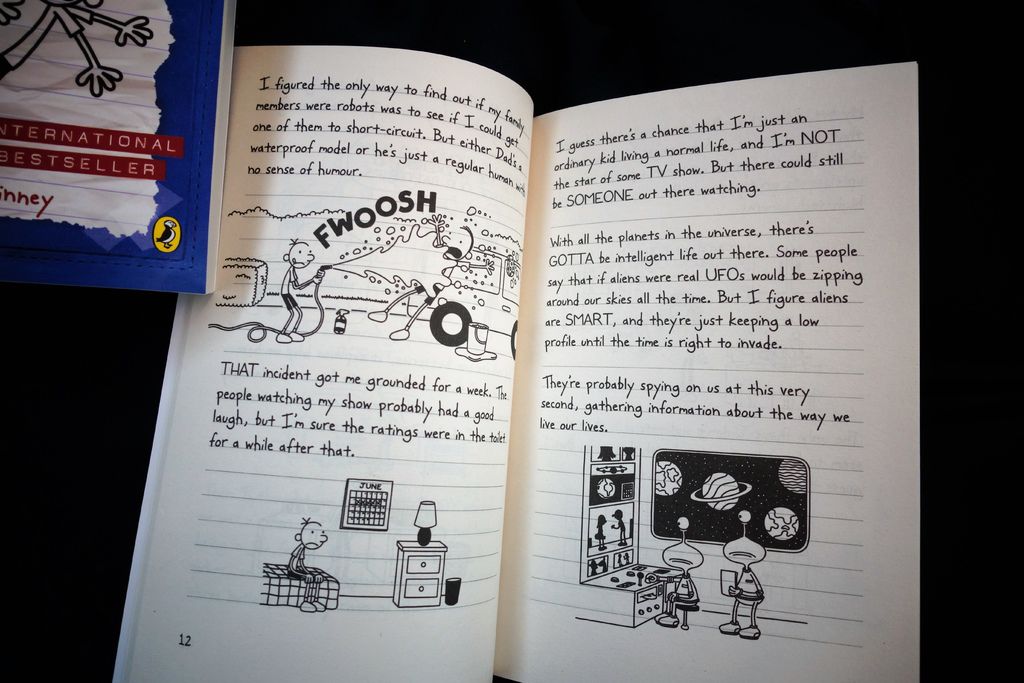 INTERNATIONAL
BESTSELLER
inney
I figured the only way to find out if my family
members were robots was to see if I could get
one of them to short-circuit. But either Dad's a
waterproof model or he's just a regular human with
no sense of humour.
FWOOSH
THAT incident got me grounded for a week. The
people watching my show probably had a good
laugh, but I'm sure the ratings were in the toilet
for a while after that.
JUNE
12
I guess there's a chance that I'm just an
ordinary kid living a normal life, and I'm NOT
the star of some TV show. But there could still
be SOMEONE out there watching.
With all the planets in the universe, there's
GOTTA be intelligent life out there. Some people
say that if aliens were real UFOs would be zipping
around our skies all the time. But I figure aliens
are SMART, and they're just keeping a low
profile until the time is right to invade.
They're probably spying on us at this very
second, gathering information about the way we
live our lives.